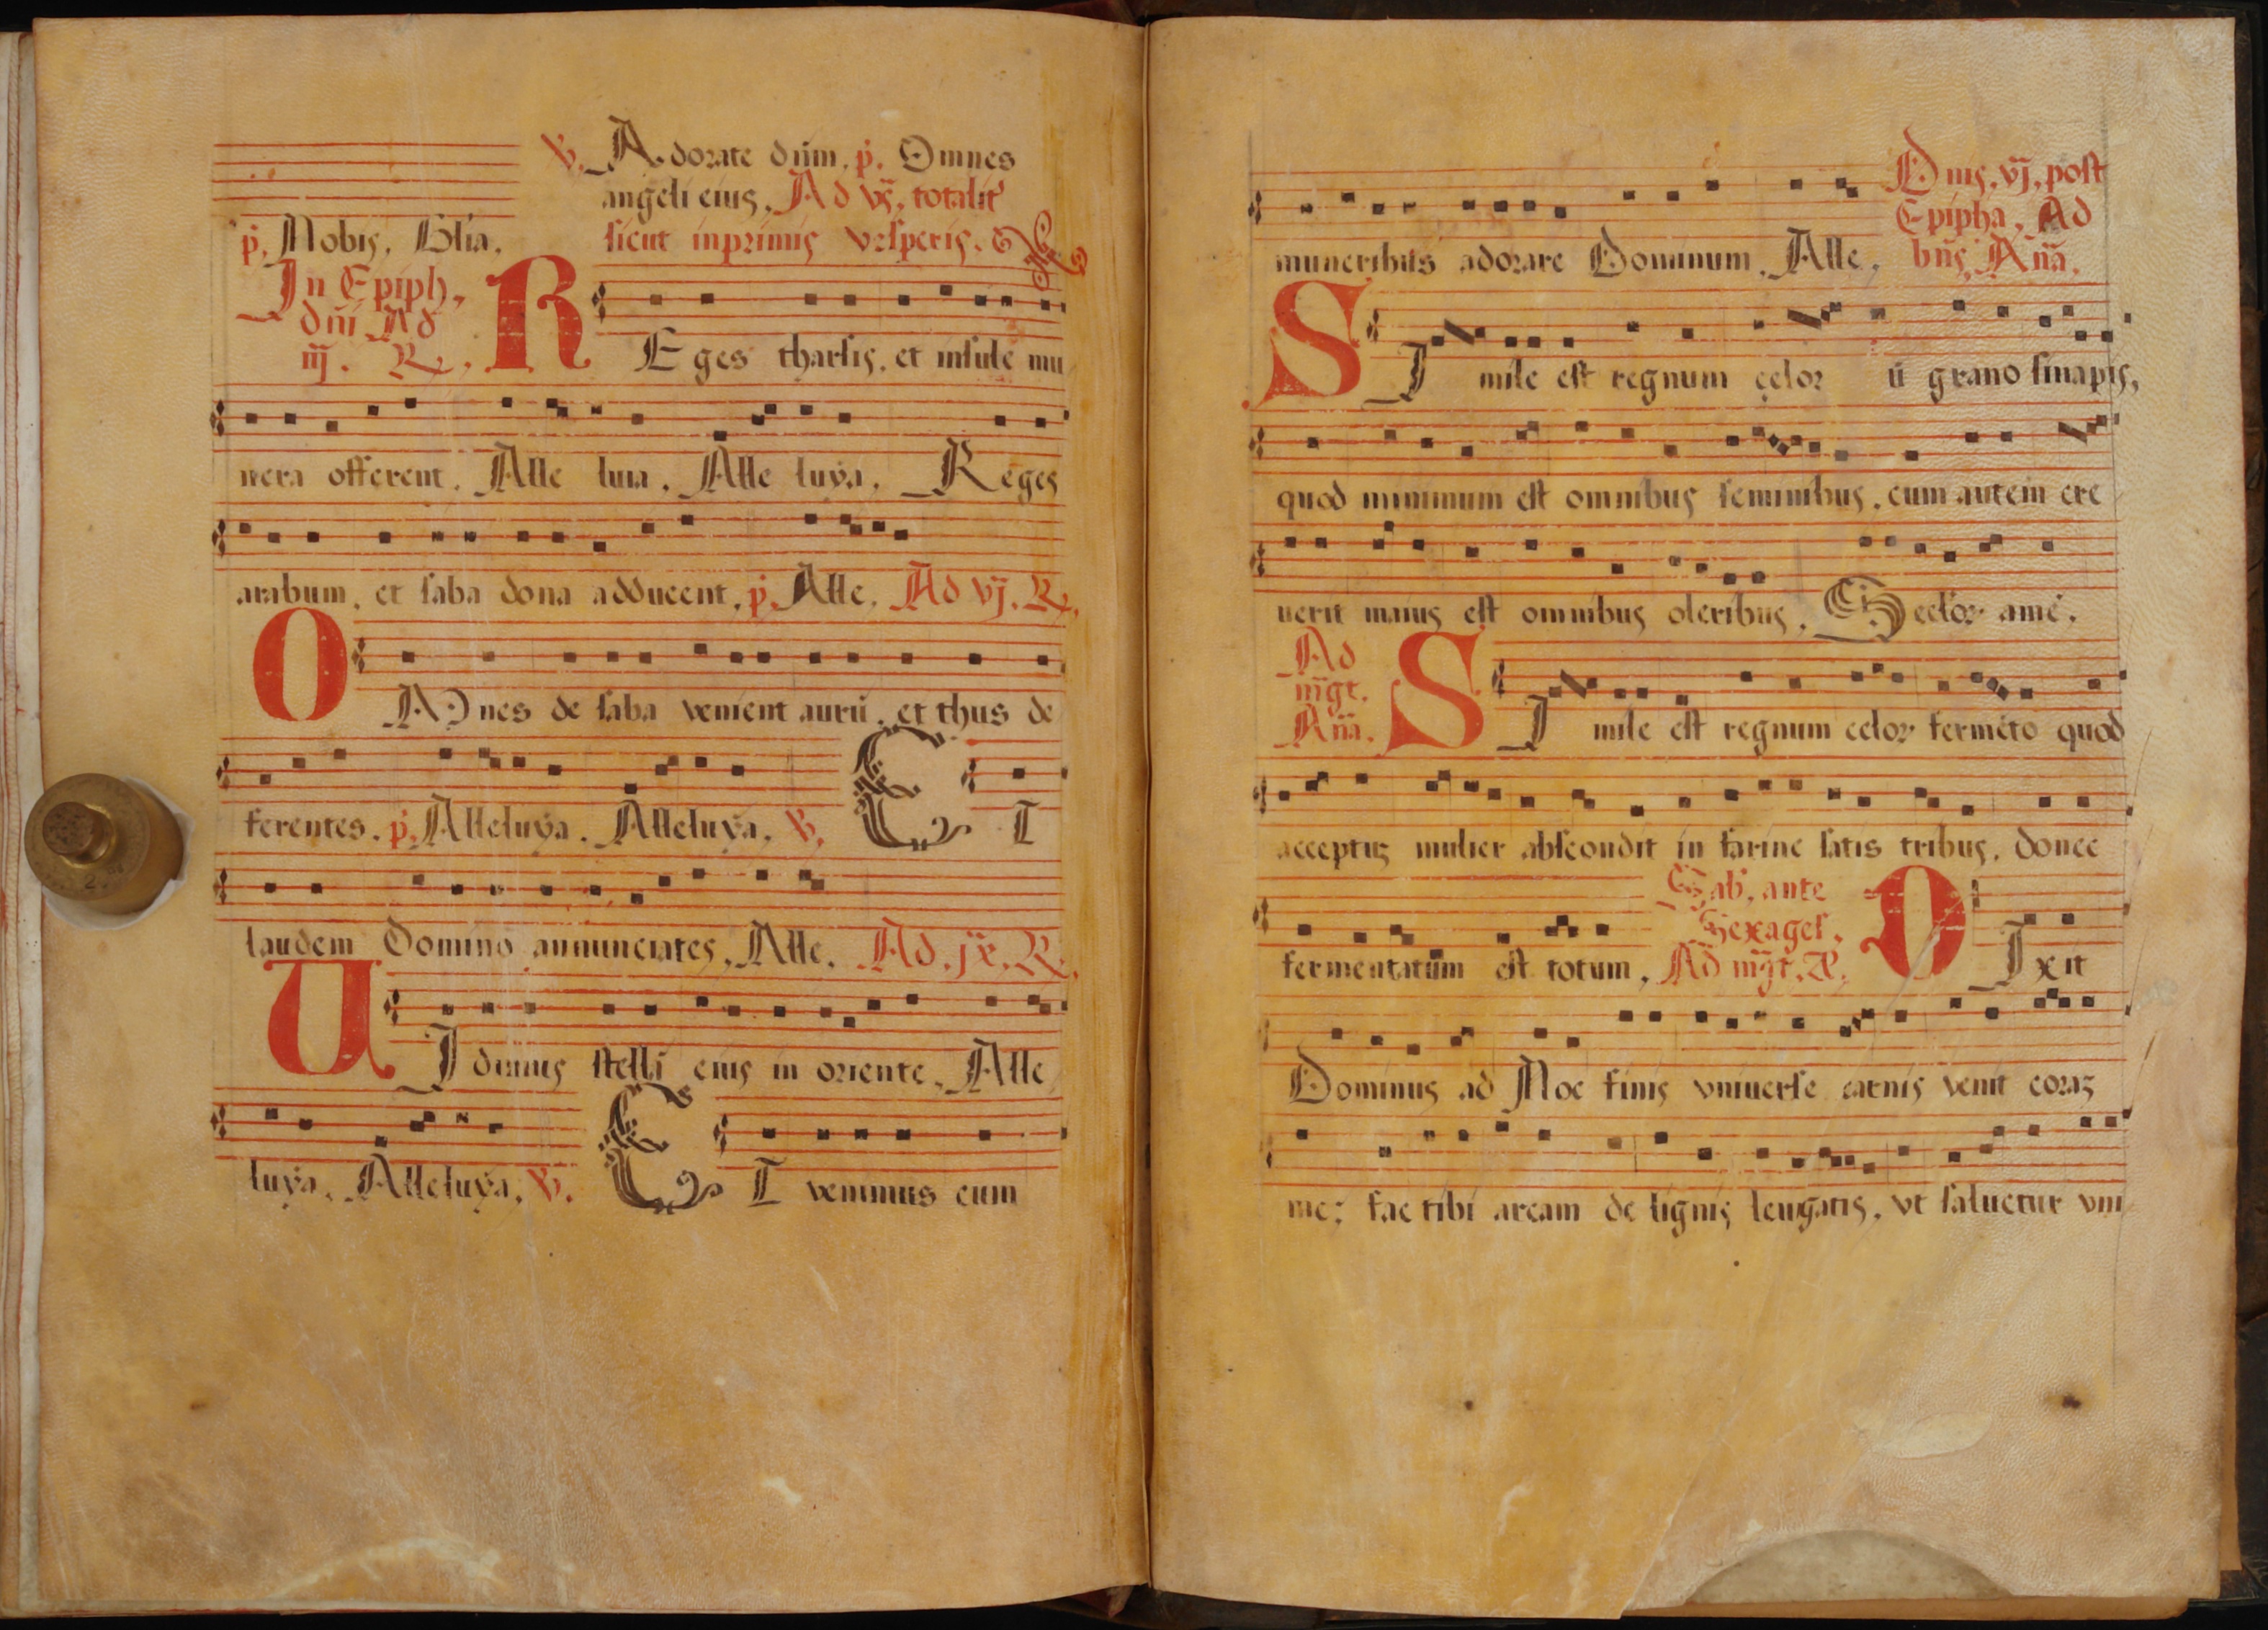 ℣. Adorate dn̄m. p̣. Omnes
angeli eius. Ad vs̄. totalit'
p̣. Nobis. Gl̄ia. sicut inprimis vesperis.
In Epiph.
dn̄i Ad
iij. R.
REges tharsis, et insule mu
nera offerent. Alle luia. Alle luya. Reges
arabum, et saba dona adducent, p̣. Alle. Ad vj. R.
OMnes de saba venient aurū. et thus de
ferentes. p̣. Alleluya. Alleluya. ℣. ET
laudem Domino annunciates. Alle. Ad. jx. R.
UIdimus stellā eius in oriente. Alle
luya. Alleluya. ℣. ET venimus cum
Dn̄is. vj. post
Epipha. Ad
muneribus adorare Dominum. Alle. bn̄s. Ān̄a.
SImile est regnum celor ū grano sinapis,
quod minimum est omnibus seminibus. cum autem cre
uerit maius est omnibus oleribus. Seclor amē.
Ad
mgt.
Ān̄a.
SImile est regnum celor fermēto quod
acceptuz mulier abscondit in farine satis tribus, donec
Sab. ante
Sexages.
fermentatum est totum. Ad mgt. Æ. DIxit
Dominus ad Noe finis vniuerse carnis venit coraz
me; fac tibi arcam de lignis leuigatis, vt saluetur vni